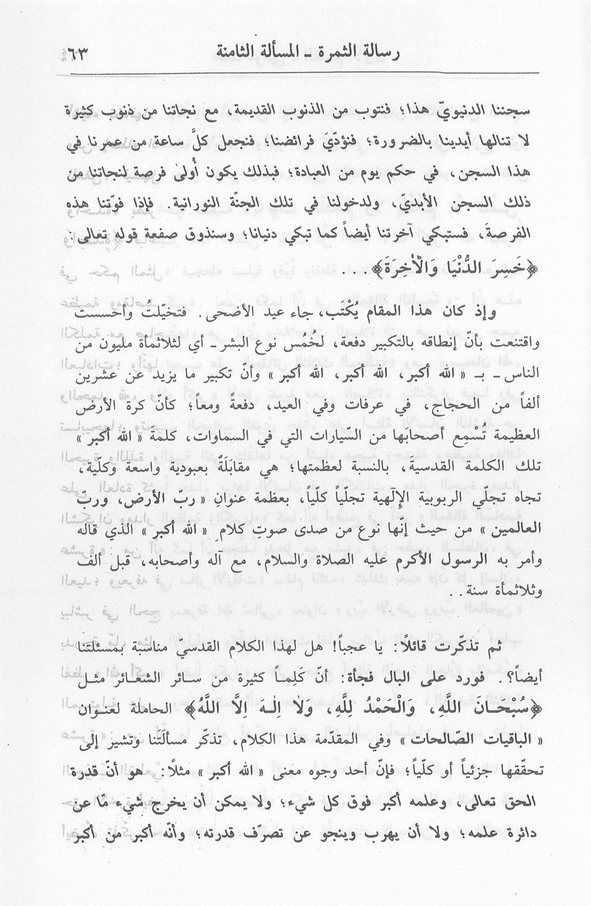 رسالة الثمرة ـ المسألة الثامنة ٦٣
سجننا الدنيويّ هذا؛ فنتوب من الذنوب القديمة، مع نجاتنا من ذنوب كثيرة
لا تنالها أيدينا بالضرورة؛ فنؤدّيَ فرائضنا؛ فنجعل كلَّ ساعة من عمرنا في
هذا السجن، في حكم يوم من العبادة؛ فبذلك يكون أُولى فرصة لنجاتنا من
ذلك السجن الأبديّ، ولدخولنا في تلك الجنّة النورانية. فإذا فوّتنا هذه
الفرصةَ، فستبكي آخرتنا أيضاً كما تبكي دنيانا؛ وسنذوق صفعة قوله تعالى:
﴿خَسِرَ الدُّنْيَا وَالْأخِرَةَ﴾...
وإذ كان هذا المقام يُكْتَب، جاء عيد الأضحى. فتخيّلتُ وأحسست
واقتنعت بأنّ إنطاقه بالتكبير دفعة، لخُمُس نوع البشر ـ أي لثلاثمأة مليون من
الناس ـ بـ «الله أكبر، الله أكبر، الله أكبر» وأنّ تكبير ما يزيد عن عشرين
ألفاً من الحجاج، في عرفات وفي العيد، دفعةً ومعاً؛ كأنّ كرة الأرض
العظيمة تُسْمِع أصحابها من السّيارات التي في السماوات، كلمة «الله أكبر»
تلك الكلمة القدسيّة، بالنسبة لعظمتها؛ هي مقابَلَةٌ بعبودية واسعة وكلّية،
تجاه تجلّي الربوبية الإلٰهية تجلّياً كلّياً، بعظمة عنوانِ «ربّ الأرض، وربّ
العالمين» من حيث إنّها نوع من صدى صوتِ كلام «الله أكبر» الذي قاله
وأمر به الرسول الأكرم عليه الصلاة والسلام، مع آله وأصحابه، قبل ألف
وثلاثمأة سنة..
ثم تذكّرت قائلاً: يا عجباً! هل لهذا الكلام القدسيّ مناسبة بمسئلتنا
أيضاً؟. فورد على البال فجأة: أنّ كَلِماً كثيرة من سائر الشعائر مثل
﴿سُبْحَانَ اللَّهِ، وَالْحَمْدُ لِلَّهِ، وَلاَ إلٰهَ إلاَّ اللَّهُ﴾ الحاملة لعنوان
«الباقيات الصّالحات» وفي المقدّمة هذا الكلام، تذكّر مسألتَنا وتشير إلى
تحقّقها جزئياً أو كلّياً؛ فإنّ أحد وجوه معنى «الله أكبر» مثلاً: هو أنّ قدرة
الحق تعالى، وعلمه أكبر فوق كل شيء؛ ولا يمكن أن يخرج شيء مّا عن
دائرة علمه؛ ولا أن يهرب وينجو عن تصرّف قدرته؛ وأنّه أكبر من أكبر